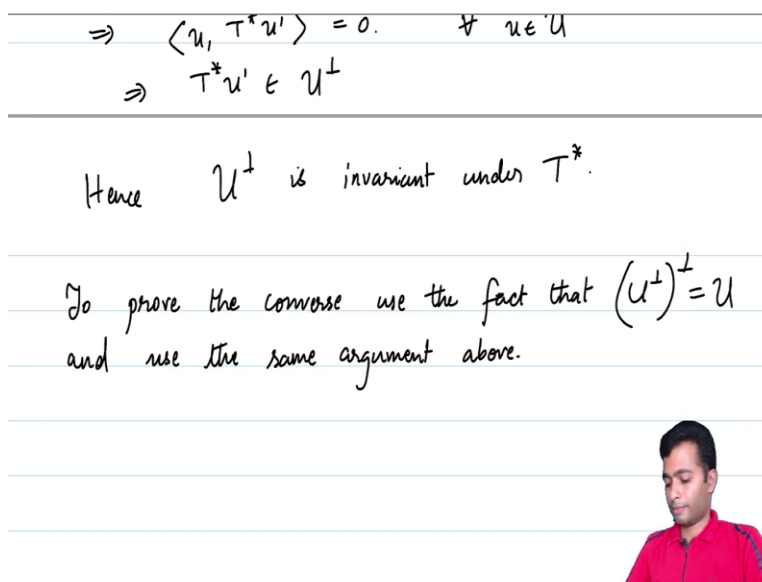 ⇒ ⟨u, T*u'⟩ = 0. ∀ u ∈ U
⇒ T*u' ∈ U⊥
Hence U⊥ is invariant under T*.
To prove the converse use the fact that (U⊥)⊥ = U
and use the same argument above.